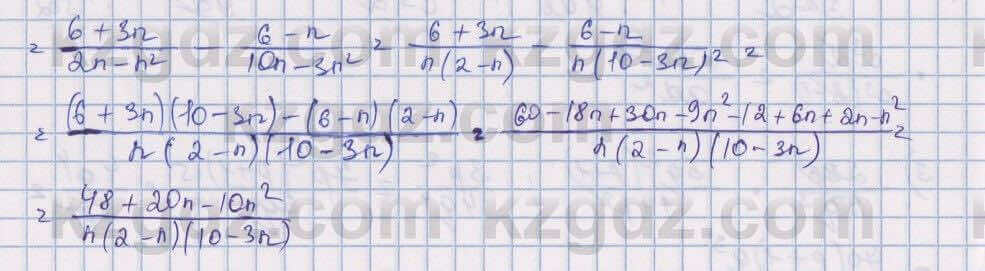 = (6 + 3n)/(2n - n²) - (6 - n)/(10n - 3n²) = (6 + 3n)/(n(2 - n)) - (6 - n)/(n(10 - 3n)²) =
= ((6 + 3n)(10 - 3n) - (6 - n)(2 - n))/(n(2 - n)(10 - 3n)) = (60 - 18n + 30n - 9n² - 12 + 6n + 2n - n²)/(n(2 - n)(10 - 3n)) =
= (48 + 20n - 10n²)/(n(2 - n)(10 - 3n))
kzgdz.com